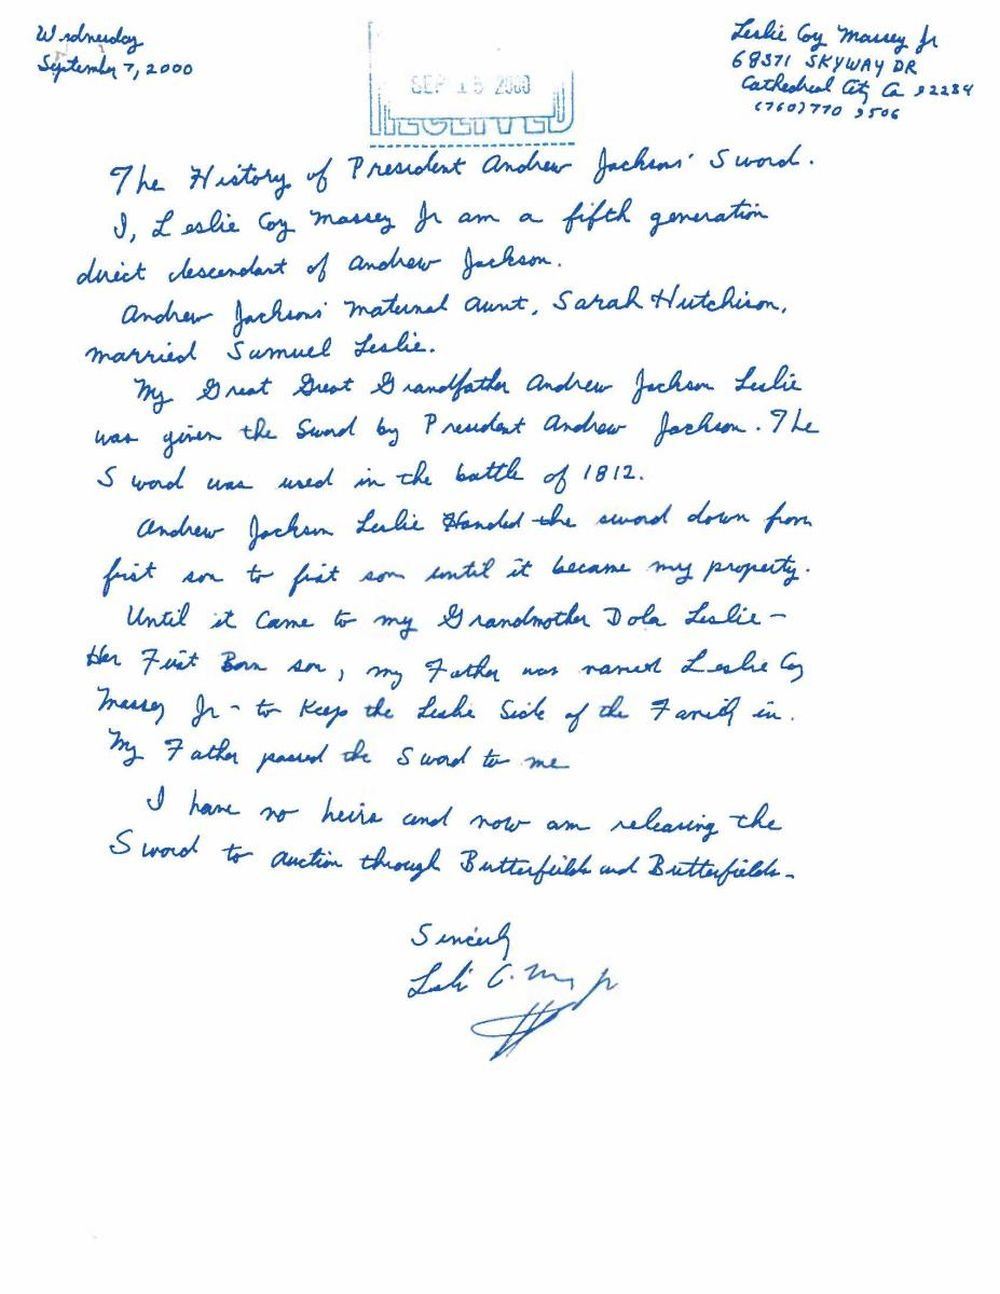 Wednesday
September 7, 2000
SEP 15 2000
RECEIVED
Leslie Coy Massey Jr
68371 SKYWAY DR
Cathedral City Ca 92234
(760) 770 9506
The History of President Andrew Jacksons' Sword.
I, Leslie Coy Massey Jr am a fifth generation
direct descendant of Andrew Jackson.
Andrew Jacksons' maternal aunt, Sarah Hutchison,
married Samuel Leslie.
My Great Great Grandfather Andrew Jackson Leslie
was given the Sword by President Andrew Jackson. The
Sword was used in the battle of 1812.
Andrew Jackson Leslie Handed the sword down from
first son to first son until it became my property.
Until it came to my Grandmother Dola Leslie -
Her First Born son, my Father was named Leslie Coy
Massey Jr - to keep the Leslie Side of the Family in.
My Father passed the Sword to me
I have no heirs and now am releasing the
Sword to auction through Butterfields and Butterfields.
Sincerly
Leslie C. Massey Jr